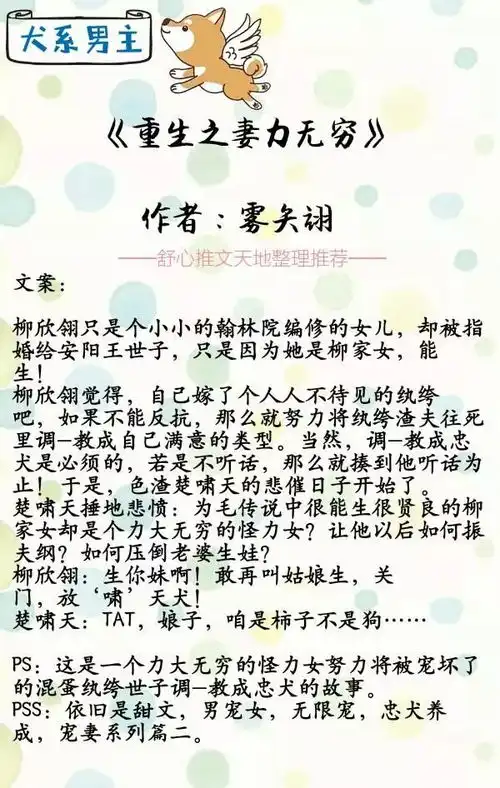 犬系男主
《重生之妻力无穷》
作者：雾矢翊
——舒心推文天地整理推荐——
文案：
柳欣翎只是个小小的翰林院编修的女儿，却被指
婚给安阳王世子，只是因为她是柳家女，能
生！
柳欣翎觉得，自己嫁了个人人不待见的纨绔
吧，如果不能反抗，那么就努力将纨绔渣夫往死
里调—教成自己满意的类型。当然，调—教成忠
犬是必须的，若是不听话，那么就揍到他听话为
止！于是，色渣楚啸天的悲催日子开始了。
楚啸天捶地悲愤：为毛传说中很能生很贤良的柳
家女却是个力大无穷的怪力女？让他以后如何振
夫纲？如何压倒老婆生娃？
柳欣翎：生你妹啊！敢再叫姑娘生，关
门，放‘啸’天犬！
楚啸天：TAT，娘子，咱是柿子不是狗……
PS：这是一个力大无穷的怪力女努力将被宠坏了
的混蛋纨绔世子调—教成忠犬的故事。
PSS：依旧是甜文，男宠女，无限宠，忠犬养
成，宠妻系列篇二。